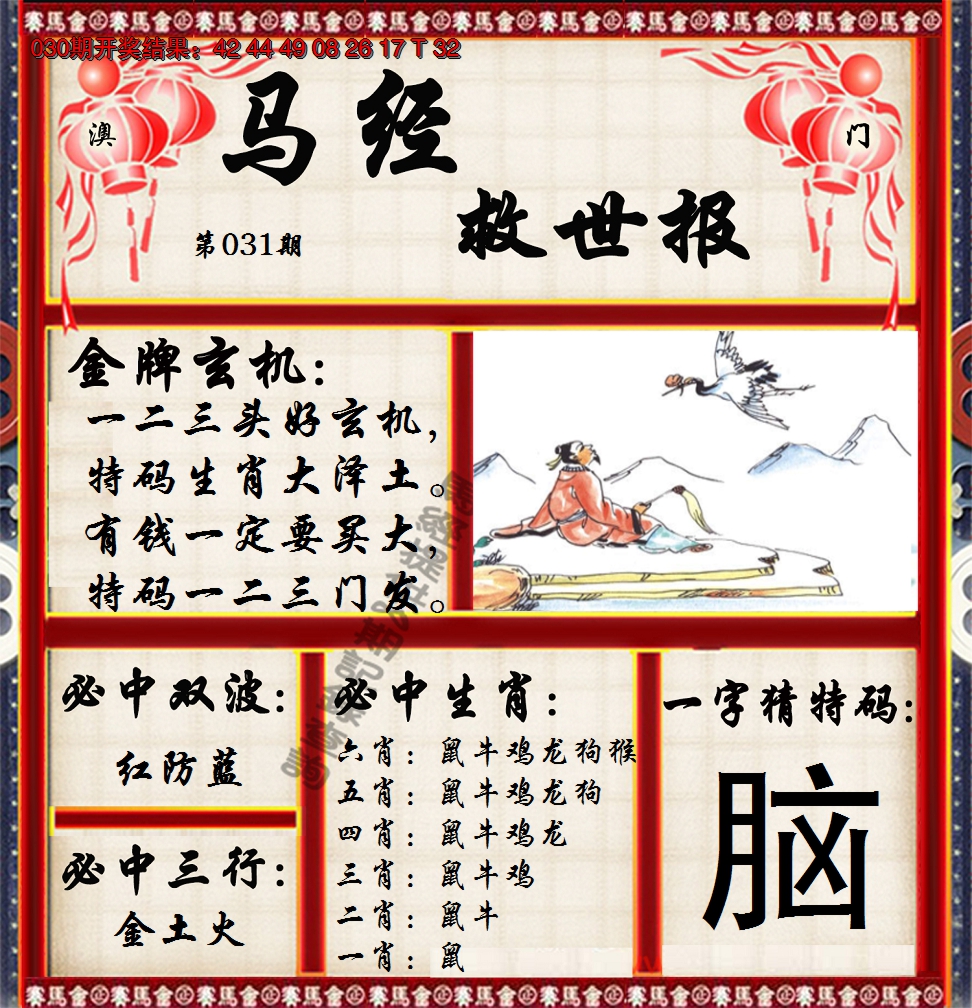 賽馬會
030期开奖结果：42 44 49 08 26 17 T 32
澳
门
马经
救世报
第031期
金牌玄机：
一二三头好玄机，
特码生肖大泽土。
有钱一定要买大，
特码一二三门发。
必中双波：
红防蓝
必中三行：
金土火
必中生肖：
六肖：鼠牛鸡龙狗猴
五肖：鼠牛鸡龙狗
四肖：鼠牛鸡龙
三肖：鼠牛鸡
二肖：鼠牛
一肖：鼠
一字猜特码：
脑